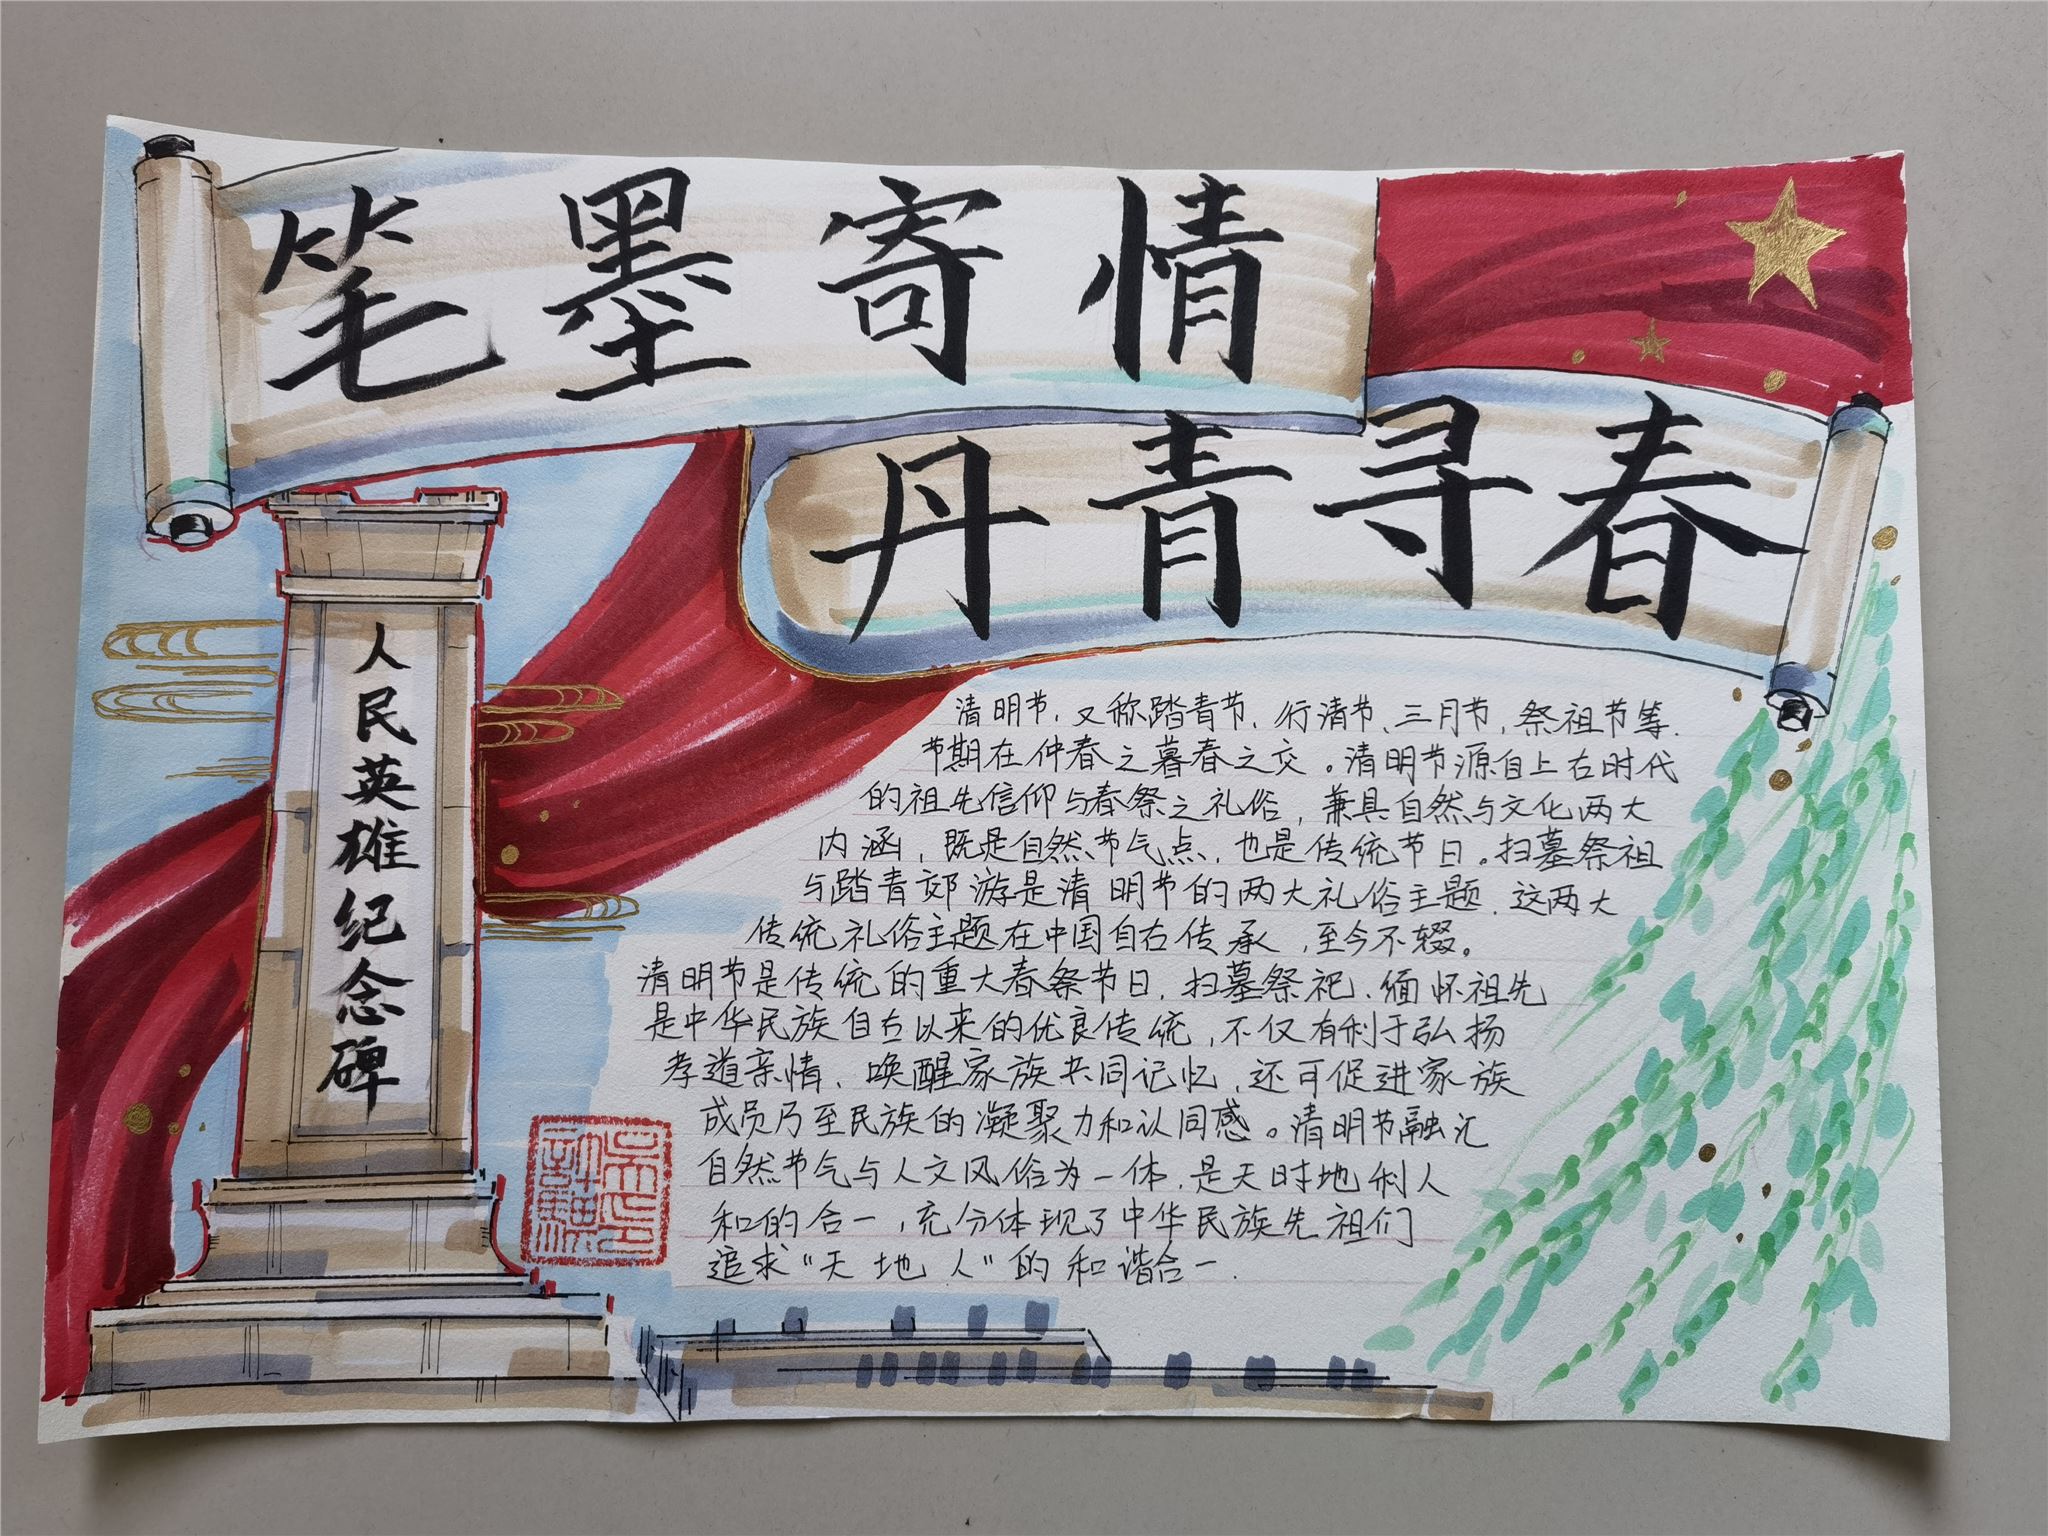 笔墨寄情
丹青寻春
人民英雄纪念碑
清明节，又称踏青节、行清节、三月节，祭祖节等.
节期在仲春之暮春之交。清明节源自上古时代
的祖先信仰与春祭之礼俗，兼具自然与文化两大
内涵，既是自然节气点，也是传统节日。扫墓祭祖
与踏青郊游是清明节的两大礼俗主题，这两大
传统礼俗主题在中国自古传承，至今不辍。
清明节是传统的重大春祭节日，扫墓祭祀、缅怀祖先
是中华民族自古以来的优良传统，不仅有利于弘扬
孝道亲情、唤醒家族共同记忆，还可促进家族
成员乃至民族的凝聚力和认同感。清明节融汇
自然节气与人文风俗为一体，是天时地利人
和的合一，充分体现了中华民族先祖们
追求“天地人”的和谐合一.